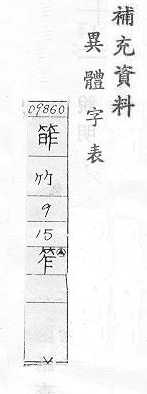 補充資料
異體字表
09860
竹
9
15
笮